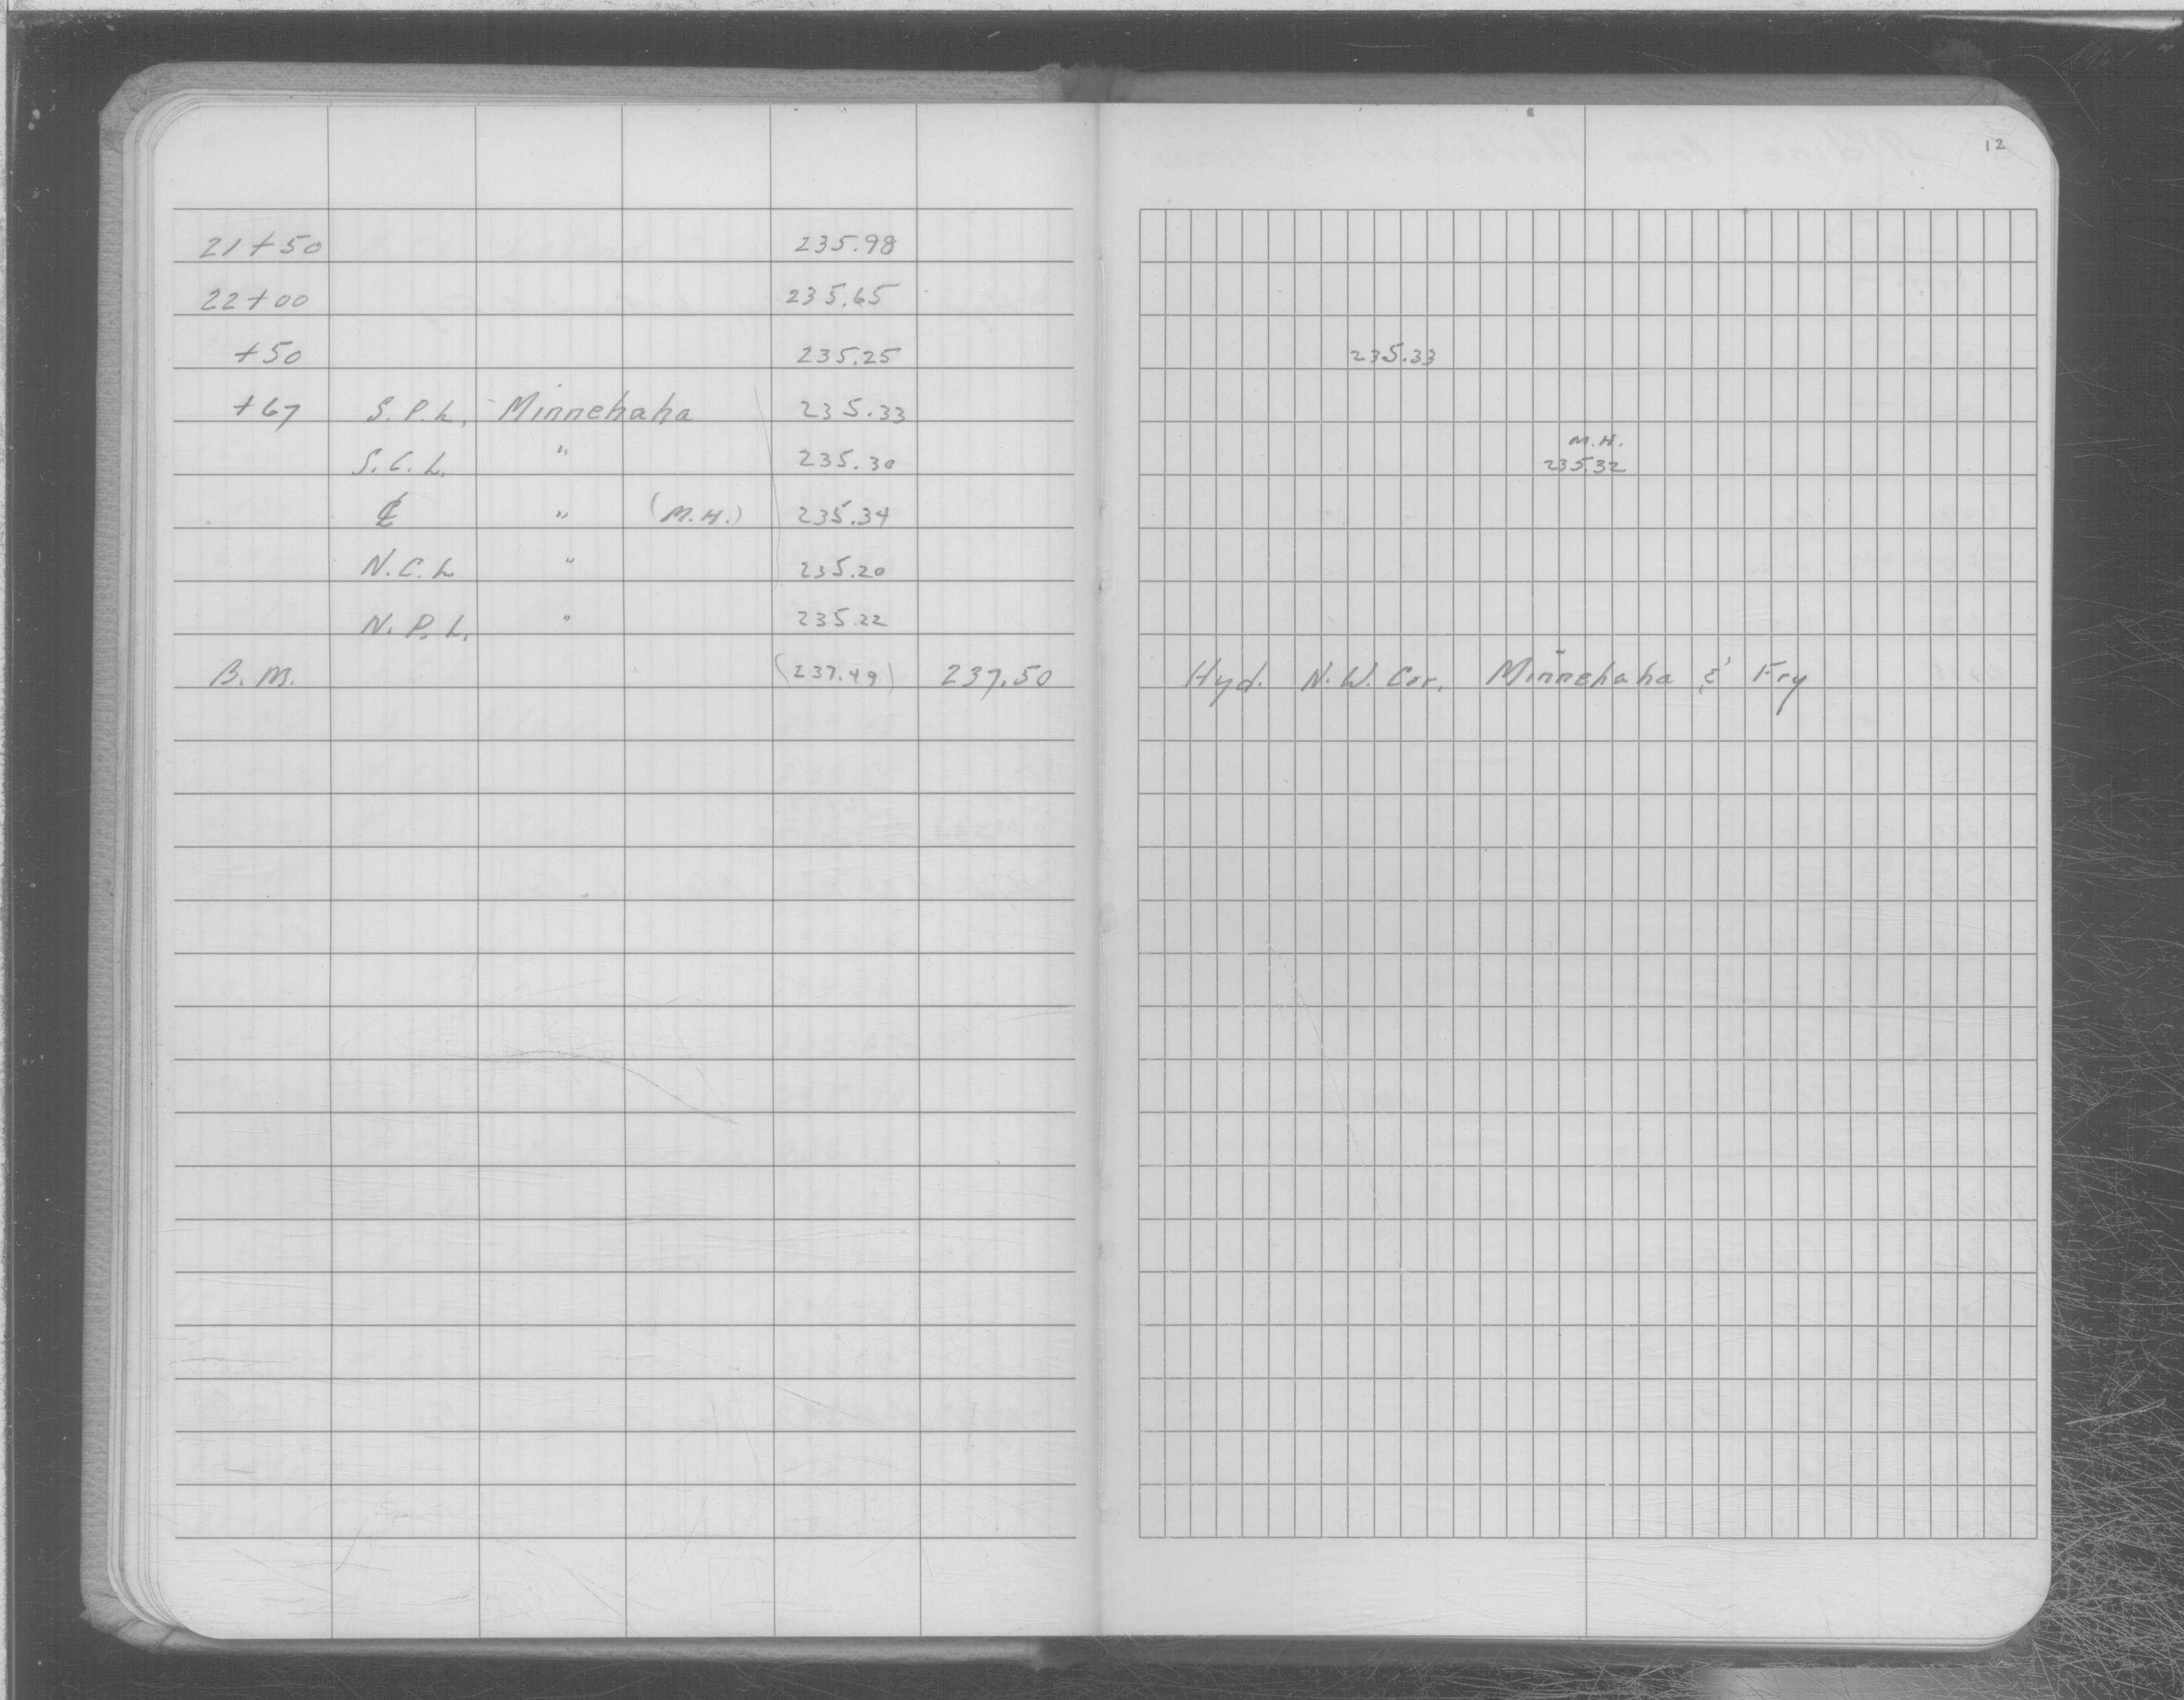 12
21+50 235.98
22+00 235.65
+50 235.25 235.33
+67 S.P.L. Minnehaha 235.33
M.H.
S.C.L. " 235.30 235.32
℄ " (M.H.) 235.34
N.C.L " 235.20
N.P.L. " 235.22
B.M. (237.49) 237.50 Hyd. N.W. Cor. Minnehaha & Fry